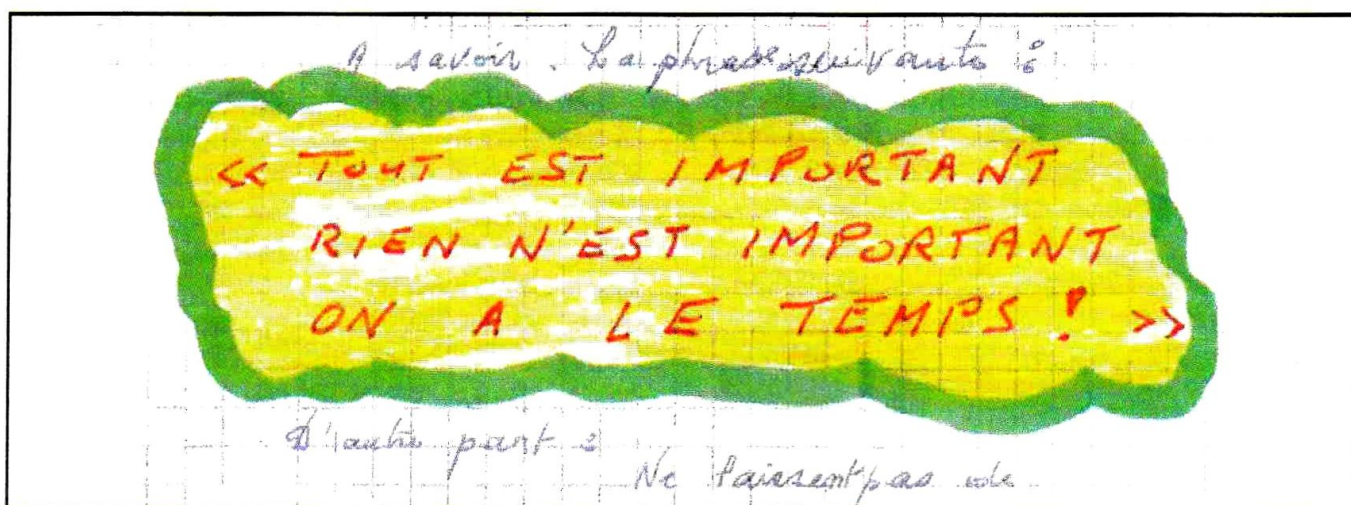 A savoir. La phrase suivante :
« TOUT EST IMPORTANT
RIEN N'EST IMPORTANT
ON A LE TEMPS ! »
D'autre part :
Ne laissent pas de